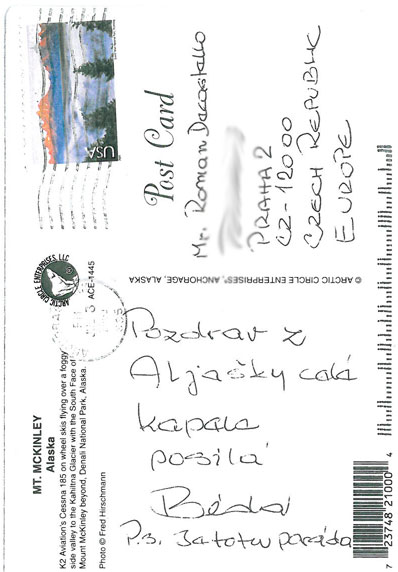 MT. MCKINLEY
Alaska
K2 Aviation's Cessna 185 on wheel skis flying over a foggy
side valley to the Kahiltna Glacier with the South Face of
Mount McKinley beyond, Denali National Park, Alaska.
Photo © Fred Hirschmann
ARCTIC CIRCLE ENTERPRISES, LLC
ACE-1445
Pozdrav z
Aljašky celá
kapela
posílá
Béďa
P.s. tu paráda
© ARCTIC CIRCLE ENTERPRISES®, ANCHORAGE, ALASKA
Post Card
USA
Mr. Roman
PRAHA 2
CZ-12000
CZECH REPUBLIC
EUROPE
7 23748 21000 4